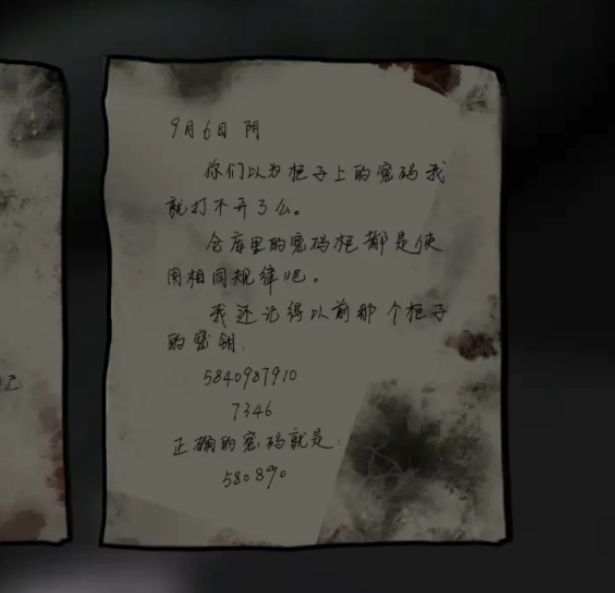 9月6日 阴
你们以为柜子上的密码我
就打不开了么。
仓库里的密码柜都是使
用相同规律吧。
我还记得以前那个柜子
的密钥:
5840987910
7346
正确的密码就是:
580890
己